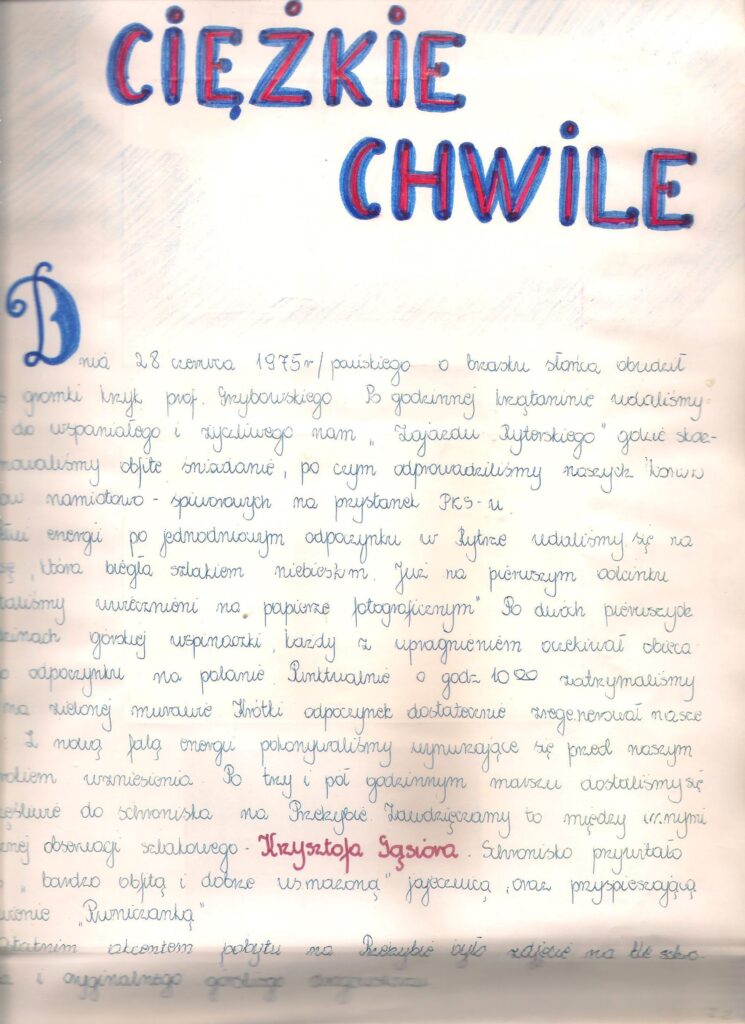 CIĘŻKIE
CHWILE
Dnia 28 czerwca 1975r/pańskiego o brzasku słońca obudził
gromki krzyk prof. Grzybowskiego. Po godzinnej krzątaninie udaliśmy
do wspaniałego i życzliwego nam „Zajazdu Ryterskiego" gdzie skon-
mowaliśmy obfite śniadanie, po czym odprowadziliśmy naszych
ów namiotowo-śpiworowych na przystanek PKS-u.
energii po jednodniowym odpoczynku w Rytrze udaliśmy się na
sę, która biegła szlakiem niebieskim. Już na pierwszym odcinku
taliśmy uwiecznieni na papierze fotograficznym" Po dwóch pierwszych
zinach górskiej wspinaczki, każdy z upragnieniem oczekiwał obieca
o odpoczynku na polanie. Punktualnie o godz 10 00 zatrzymaliśmy
na zielonej murawie Krótki odpoczynek dostatecznie zregenerował nasze
Z nową falą energii pokonywaliśmy wynurzające się przed naszym
rokiem wzniesienia. Po trzy i pół godzinnym marszu dostaliśmy się
zęśliwie do schroniska na Przehybie. Zawdzięczamy to między innymi
nej obserwacji szlakowego - Krzysztofa Gąsiora. Schronisko przywitało
„bardzo obfitą i dobrze usmażoną" jajecznicą, oraz przyspieszającą
wienie „Piwniczanką"
tatnim akcentem pobytu na Przehybie było zdjęcie na tle schro-
a i oryginalnego górskiego